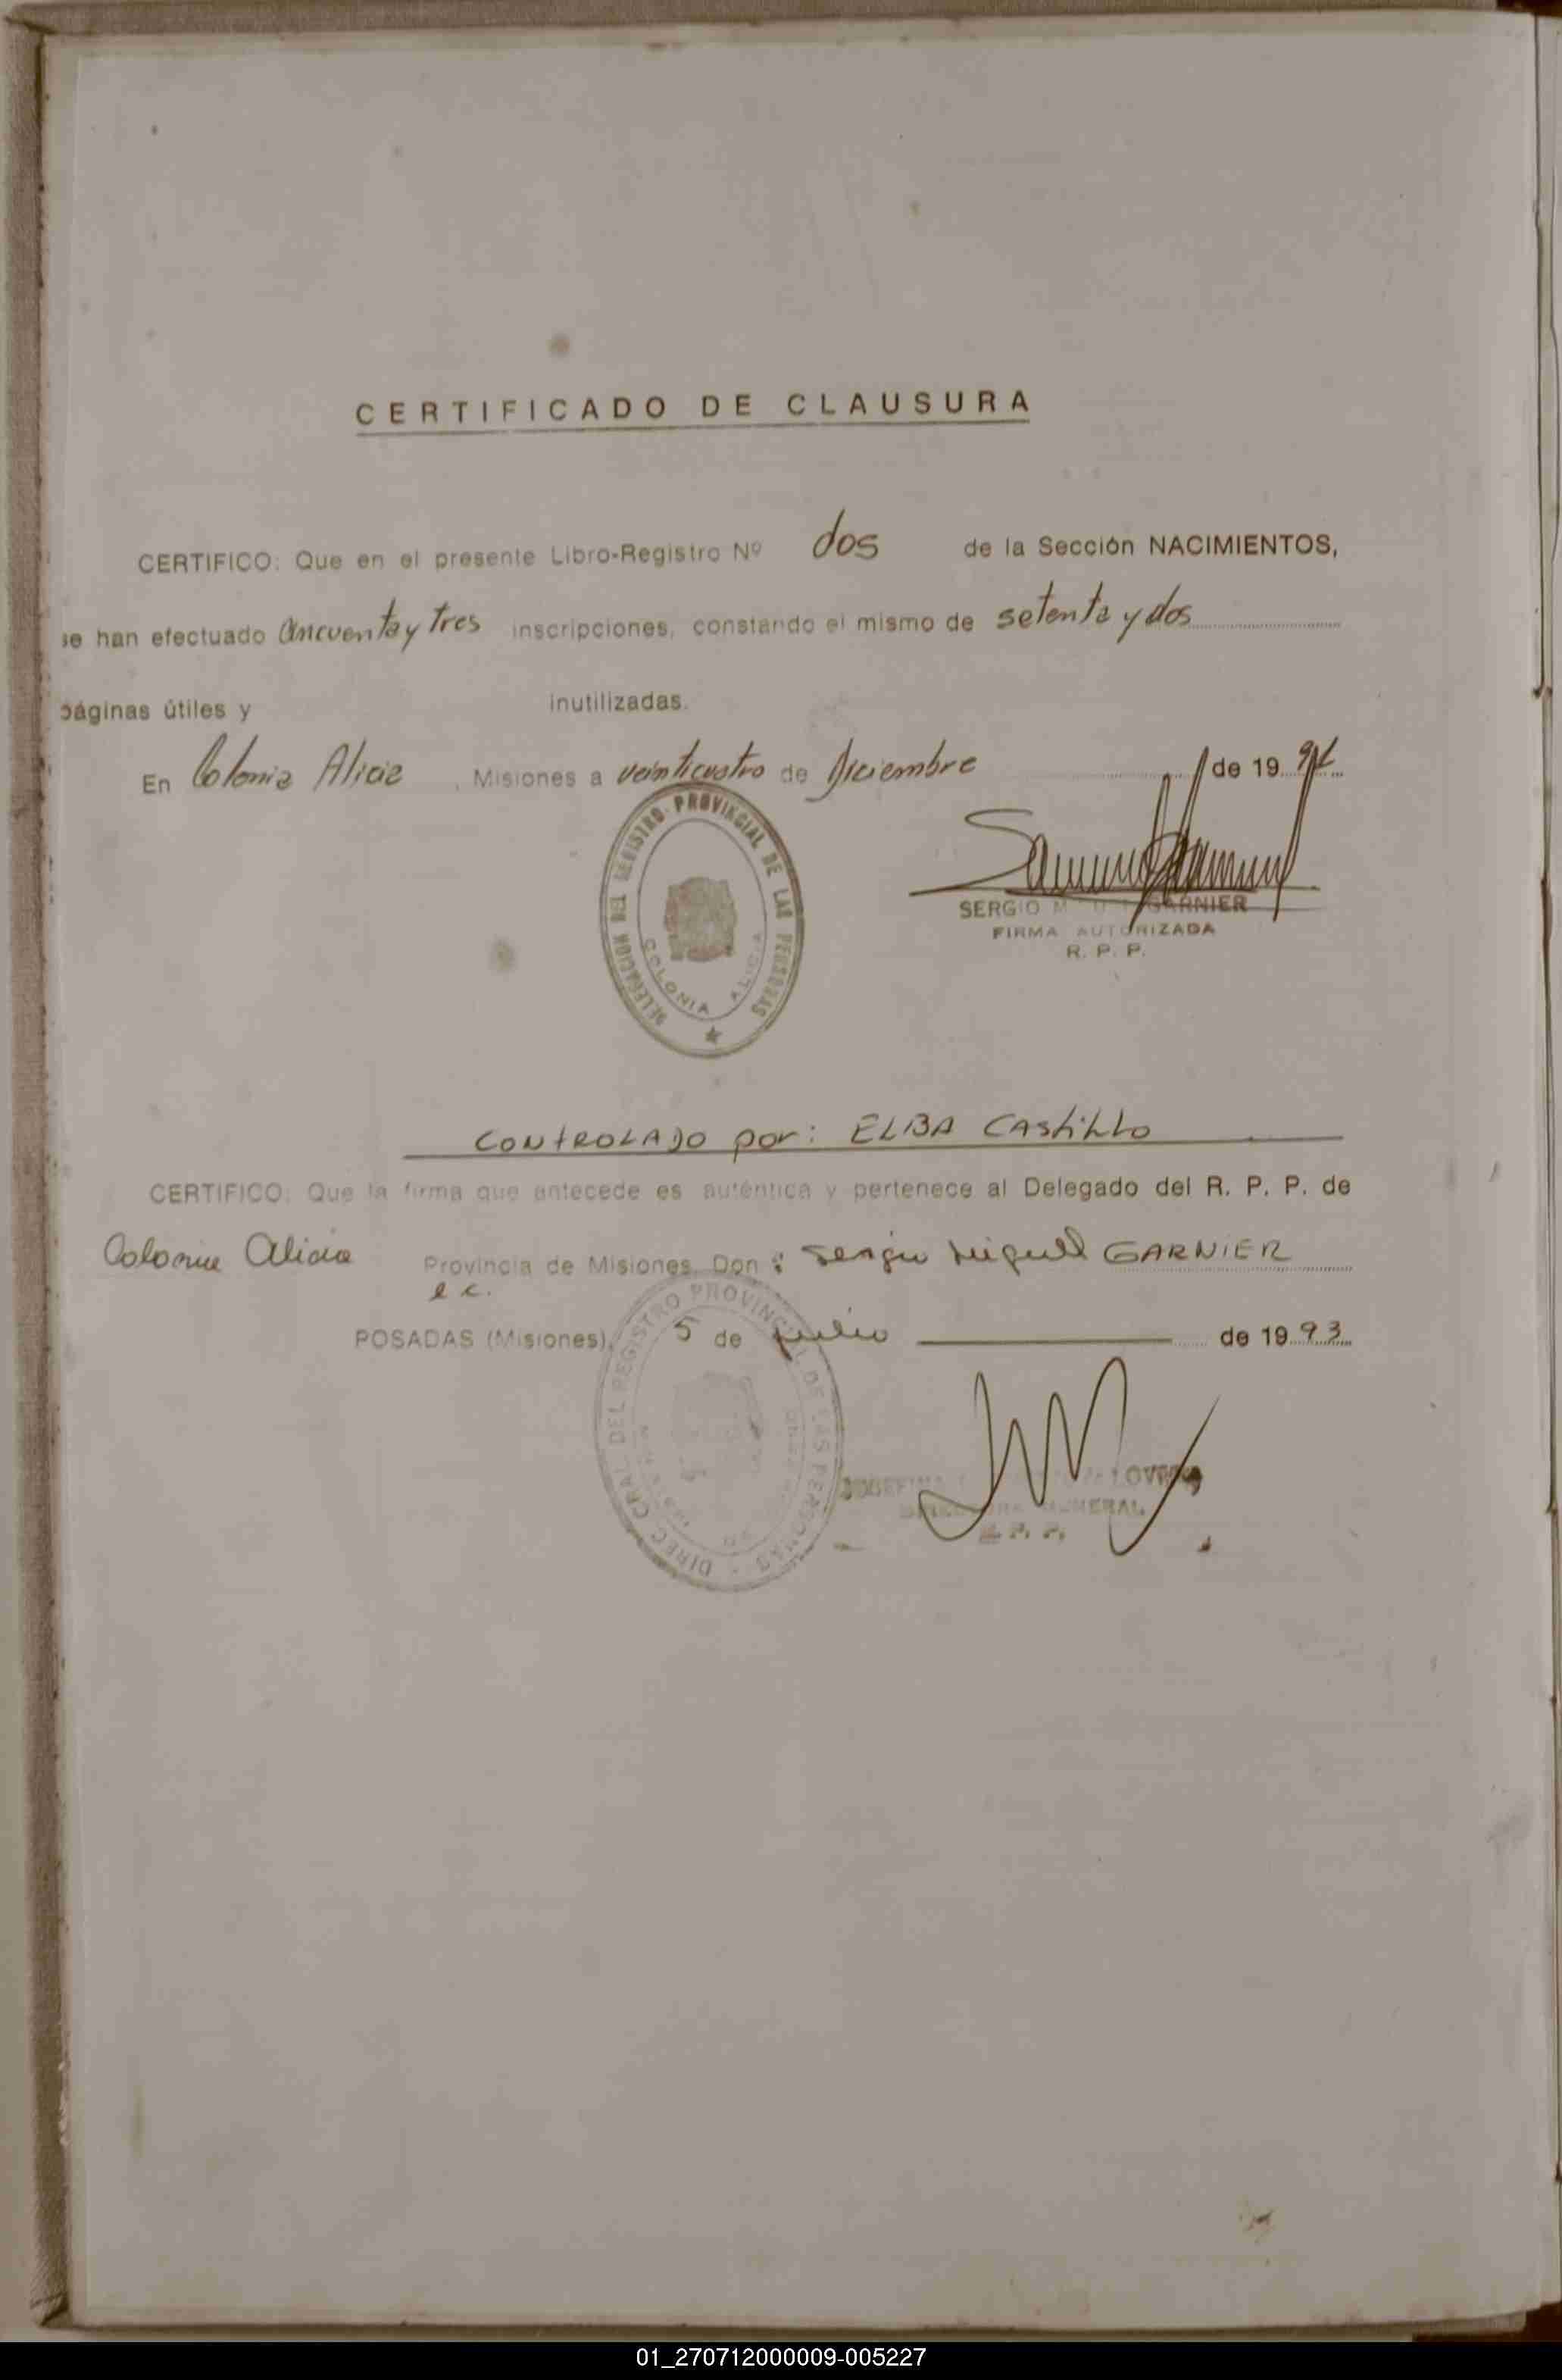 CERTIFICADO DE CLAUSURA
CERTIFICO: Que en el presente Libro-Registro Nº dos de la Sección NACIMIENTOS,
se han efectuado Cincuenta y tres inscripciones, constando el mismo de setenta y dos
páginas útiles y inutilizadas.
En Colonia Alicia, Misiones a veinticuatro de Diciembre de 19
DELEGACION DEL REGISTRO PROVINCIAL DE LAS PERSONAS
COLONIA ALICIA
SERGIO GARNIER
FIRMA AUTORIZADA
R. P. P.
CONTROLADO por: ELBA CASTILLO
CERTIFICO: Que la firma que antecede es auténtica y pertenece al Delegado del R. P. P. de
Colonia Alicia Provincia de Misiones, Don: Sergio Miguel GARNIER
e c.
POSADAS (Misiones), 5 de Julio de 1993
DIREC. GRAL. DEL REGISTRO PROVINCIAL DE LAS PERSONAS
R. P. P.
01_270712000009-005227